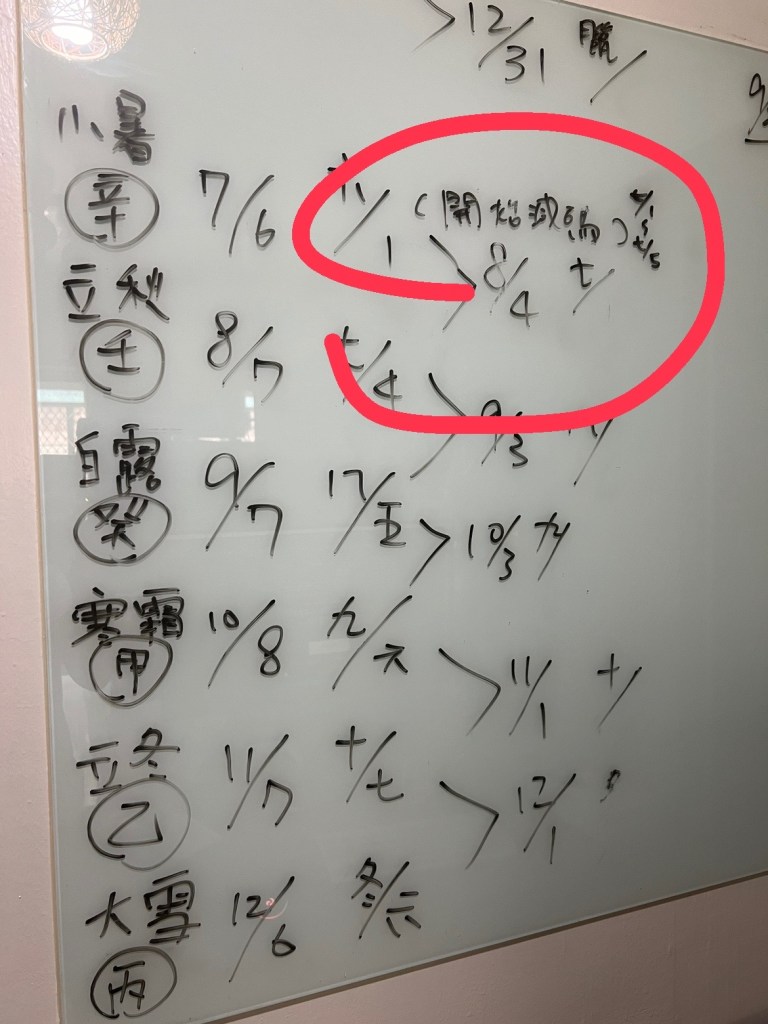 12/31 臘/
小暑
辛 7/6 六/1 (開始減碼)
8/4 七/
立秋
壬 8/7 七/4
9/3 八/
白露
癸 9/7 17/五
10/3 九/
寒霜
甲 10/8 九/六
11/1 十/
立冬
乙 11/7 十/七
12/1
大雪
丙 12/6 冬/六